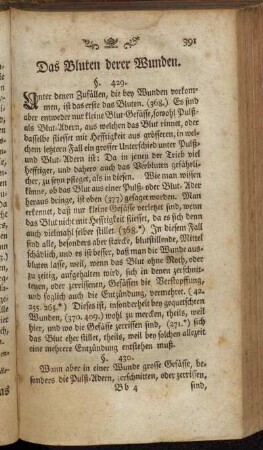 391
Das Bluten derer Wunden.
§. 429.
Unter denen Zufällen, die bey Wunden vorkom-
men, ist das erste das Bluten. (368.) Es sind
aber entweder nur kleine Blut-Gefässe, sowohl Pulß-
als Blut-Adern, aus welchen das Blut rinnet, oder
dasselbe fliesset mit Hefftigkeit aus grösseren, in wel-
chem letztern Fall ein grosser Unterschied unter Pulß-
und Blut-Adern ist: Da in jenen der Trieb viel
hefftiger, und dahero auch das Verbluten gefährli-
cher, zu seyn pfleget, als in diesen. Wie man wissen
könne, ob das Blut aus einer Pulß- oder Blut-Ader
heraus dringe, ist oben (377.) gesaget worden. Man
erkennet, daß nur kleine Gefässe verletzet sind, wenn
das Blut nicht mit Hefftigkeit fliesset, da es sich denn
auch vielmahl selber stillet. (368.*) In diesem Fall
sind alle, besonders aber starcke, blutstillende, Mittel
schädlich, und es ist besser, daß man die Wunde aus-
bluten lasse, weil, wenn das Blut ohne Noth, oder
zu zeitig, aufgehalten wird, sich in denen zerschnit-
tenen, oder zerrissenen, Gefässen die Verstopffung,
und folglich auch die Entzündung, vermehret. (42.
255. 265.*) Dieses ist, insonderheit bey gequetschten
Wunden, (370. 409.) wohl zu mercken, theils, weil
hier, und wo die Gefässe zerrissen sind, (371.*) sich
das Blut eher stillet, theils, weil bey solchen allezeit
eine mehrere Entzündung entstehen muß.
§. 430.
Wann aber in einer Wunde grosse Gefässe, be-
sonders die Pulß-Adern, zerschnitten, oder zerrissen,
Bb 4 sind,